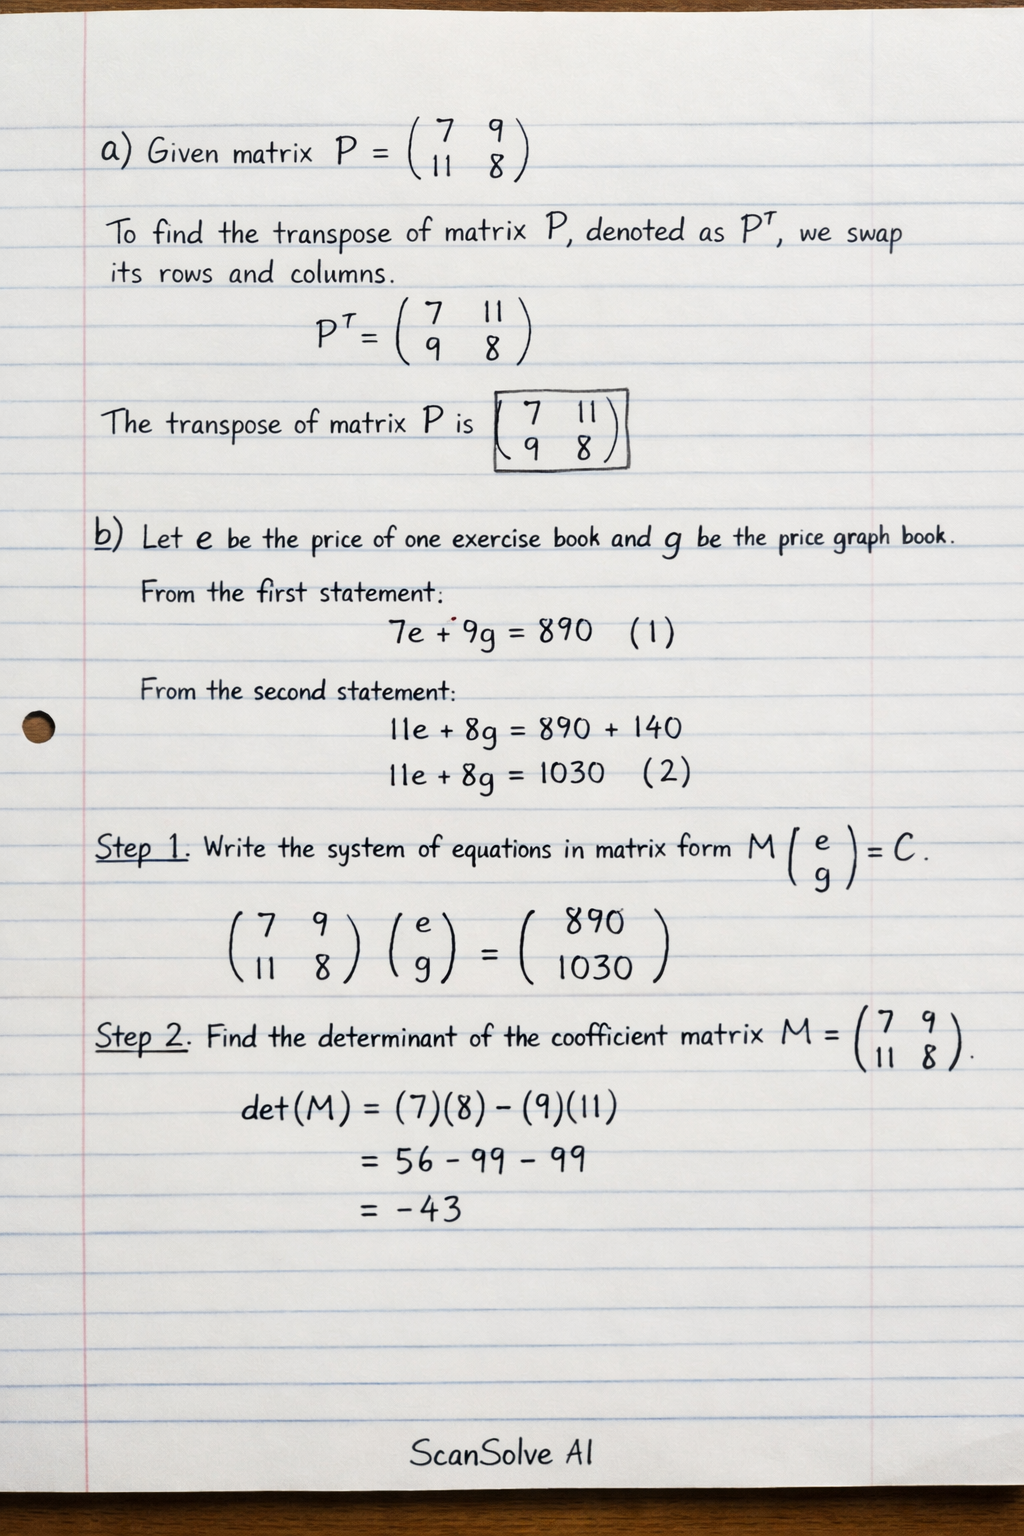 a) Given matrix P = ( 7 9
11 8 )
To find the transpose of matrix P, denoted as Pᵀ, we swap
its rows and columns.
Pᵀ = ( 7 11
9 8 )
The transpose of matrix P is ( 7 11
9 8 )
b) Let e be the price of one exercise book and g be the price graph book.
From the first statement:
7e + 9g = 890 (1)
From the second statement:
11e + 8g = 890 + 140
11e + 8g = 1030 (2)
Step 1. Write the system of equations in matrix form M ( e
g ) = C.
( 7 9
11 8 ) ( e
g ) = ( 890
1030 )
Step 2. Find the determinant of the coofficient matrix M = ( 7 9
11 8 ).
det(M) = (7)(8) - (9)(11)
= 56 - 99 - 99
= -43
ScanSolve AI